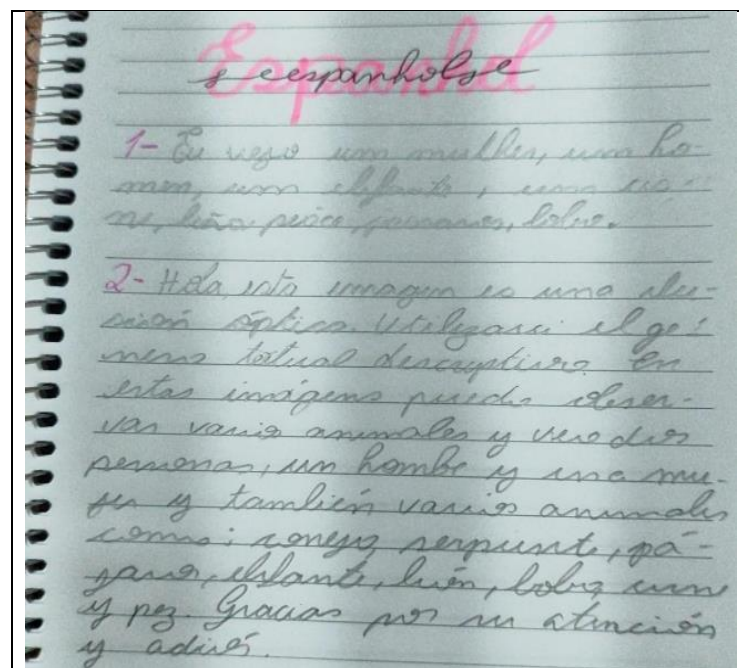 Espanhol
1- Eu vejo um mulher, um ho-
mem, um elefante, uma
leão peixe, passaros, lobo.
2- Hola, esta imagen es una ilu-
sión óptica. Utilizarei el gé-
nero textual descriptivo. En
estas imágens puedo obser-
var varios animales y veo dos
personas, un hombe y una mu-
jer y también varios animales
como: conejo, serpiente, pá-
jaros, elefante, león, lobo,
y pez. Gracias por su atención
y adiós.